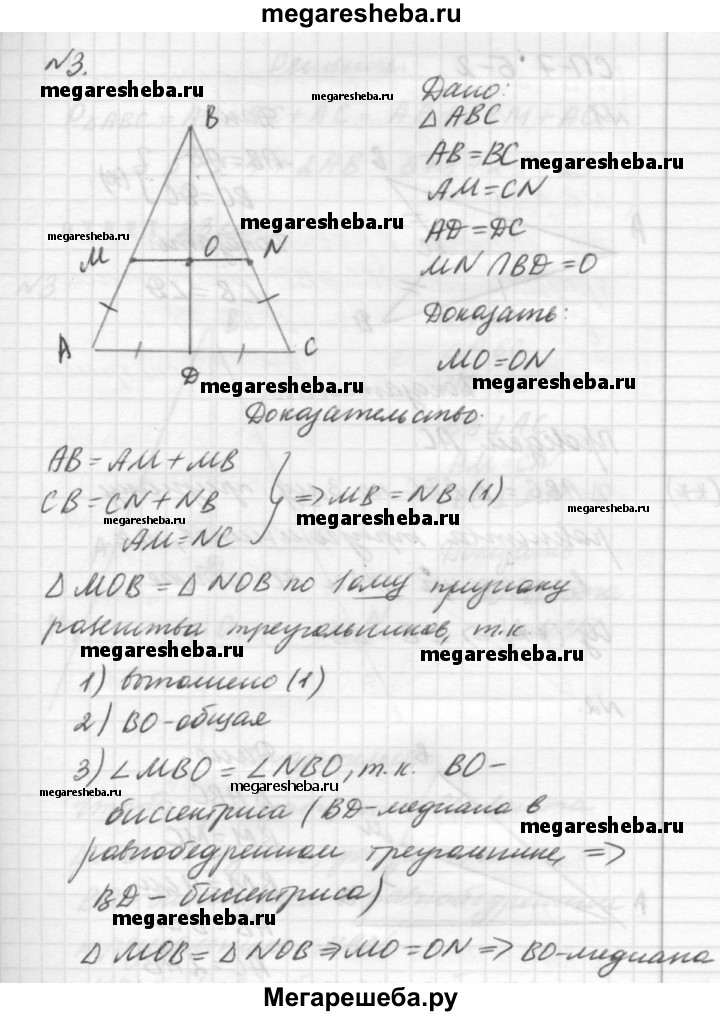 megaresheba.ru
№3.
megaresheba.ru
megaresheba.ru
B
Дано:
△ ABC
AB=BC
megaresheba.ru
AM=CN
megaresheba.ru
megaresheba.ru
AD=DC
M
O
N
MN ∩ BD = O
A
C
D
Доказать:
MO=ON
megaresheba.ru
megaresheba.ru
Доказательство.
AB = AM + MB
CB = CN + NB
AM = NC
=> MB = NB (1)
megaresheba.ru
megaresheba.ru
megaresheba.ru
△ MOB = △ NOB по 1ому признаку
равенства треугольников, т.к.
megaresheba.ru
megaresheba.ru
1) выполнено (1)
2) BO-общая
3) ∠MBO = ∠NBO, т.к. BO-
megaresheba.ru
megaresheba.ru
биссектриса (BD-медиана в
megaresheba.ru
равнобедренном треугольнике, =>
BD - биссектриса)
megaresheba.ru
△ MOB = △ NOB => MO = ON => BO-медиана
Мегарешеба.ру